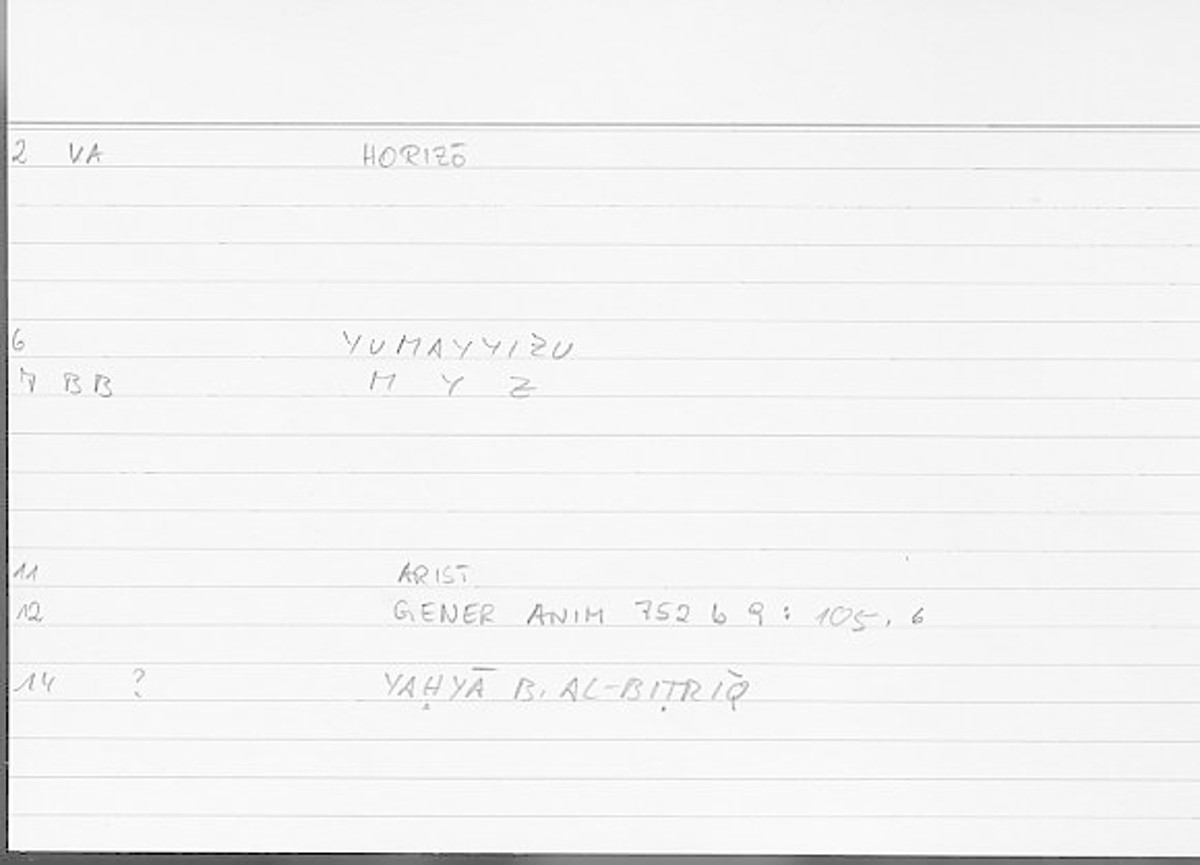 2 VA HORIZŌ
6 YUMAYYIZU
7 BB M Y Z
11 ARIST
12 GENER ANIM 752 b 9 : 105, 6
14 ? YAḤYĀ B. AL-BIṬRĪQ